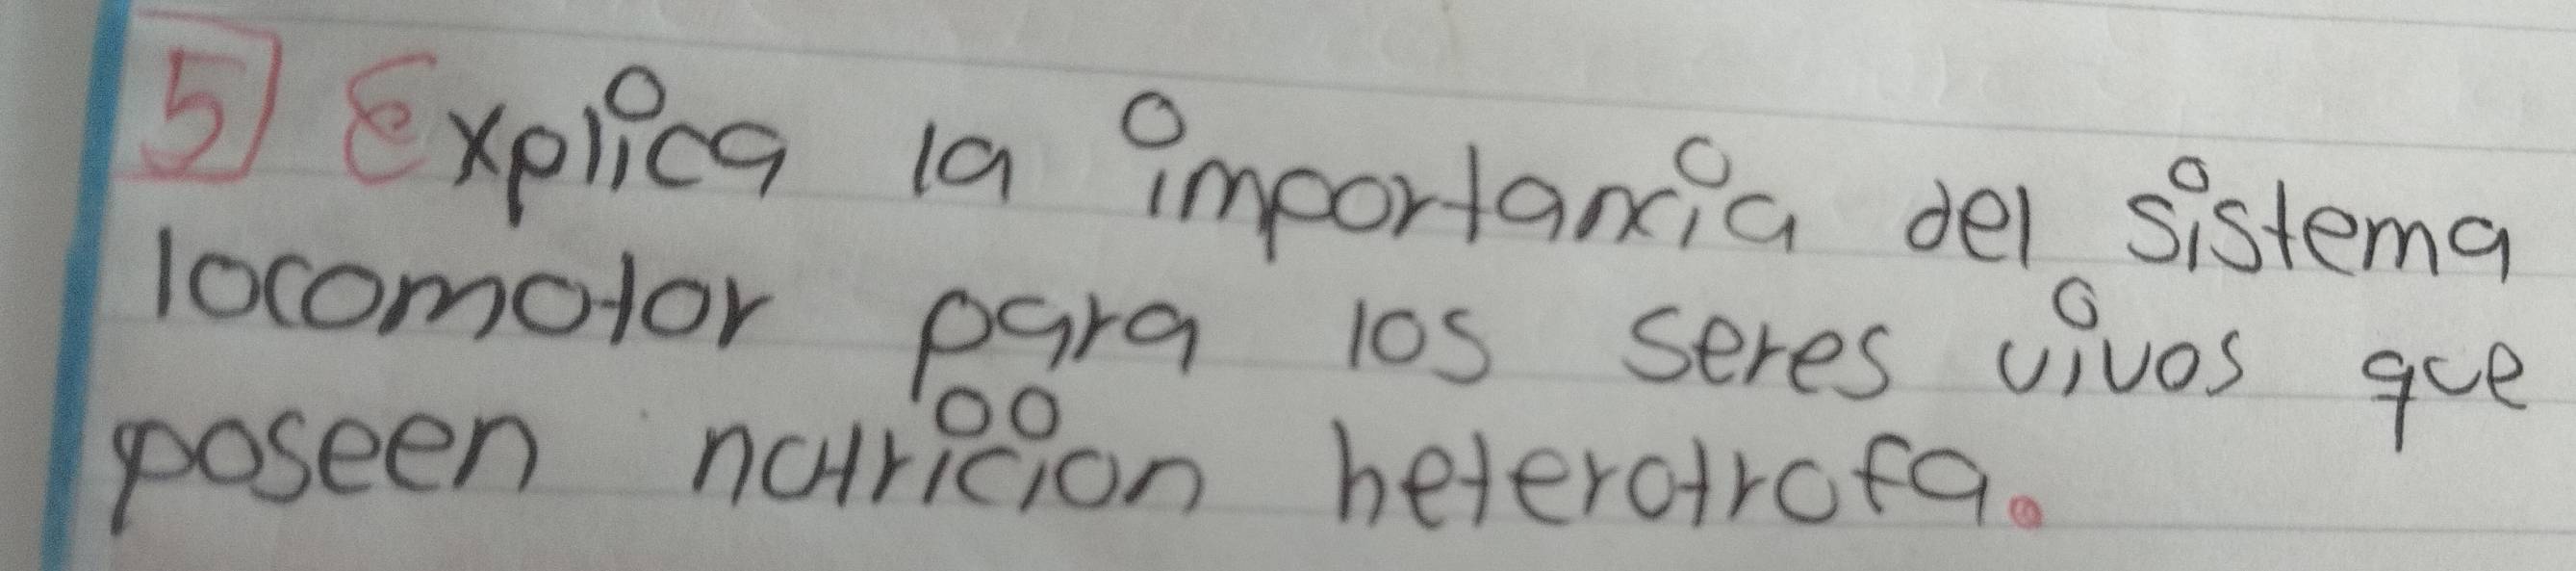 5) Explica la importancia del sistema
locomotor para los seres vivos que
poseen nutricion heterotrofa.